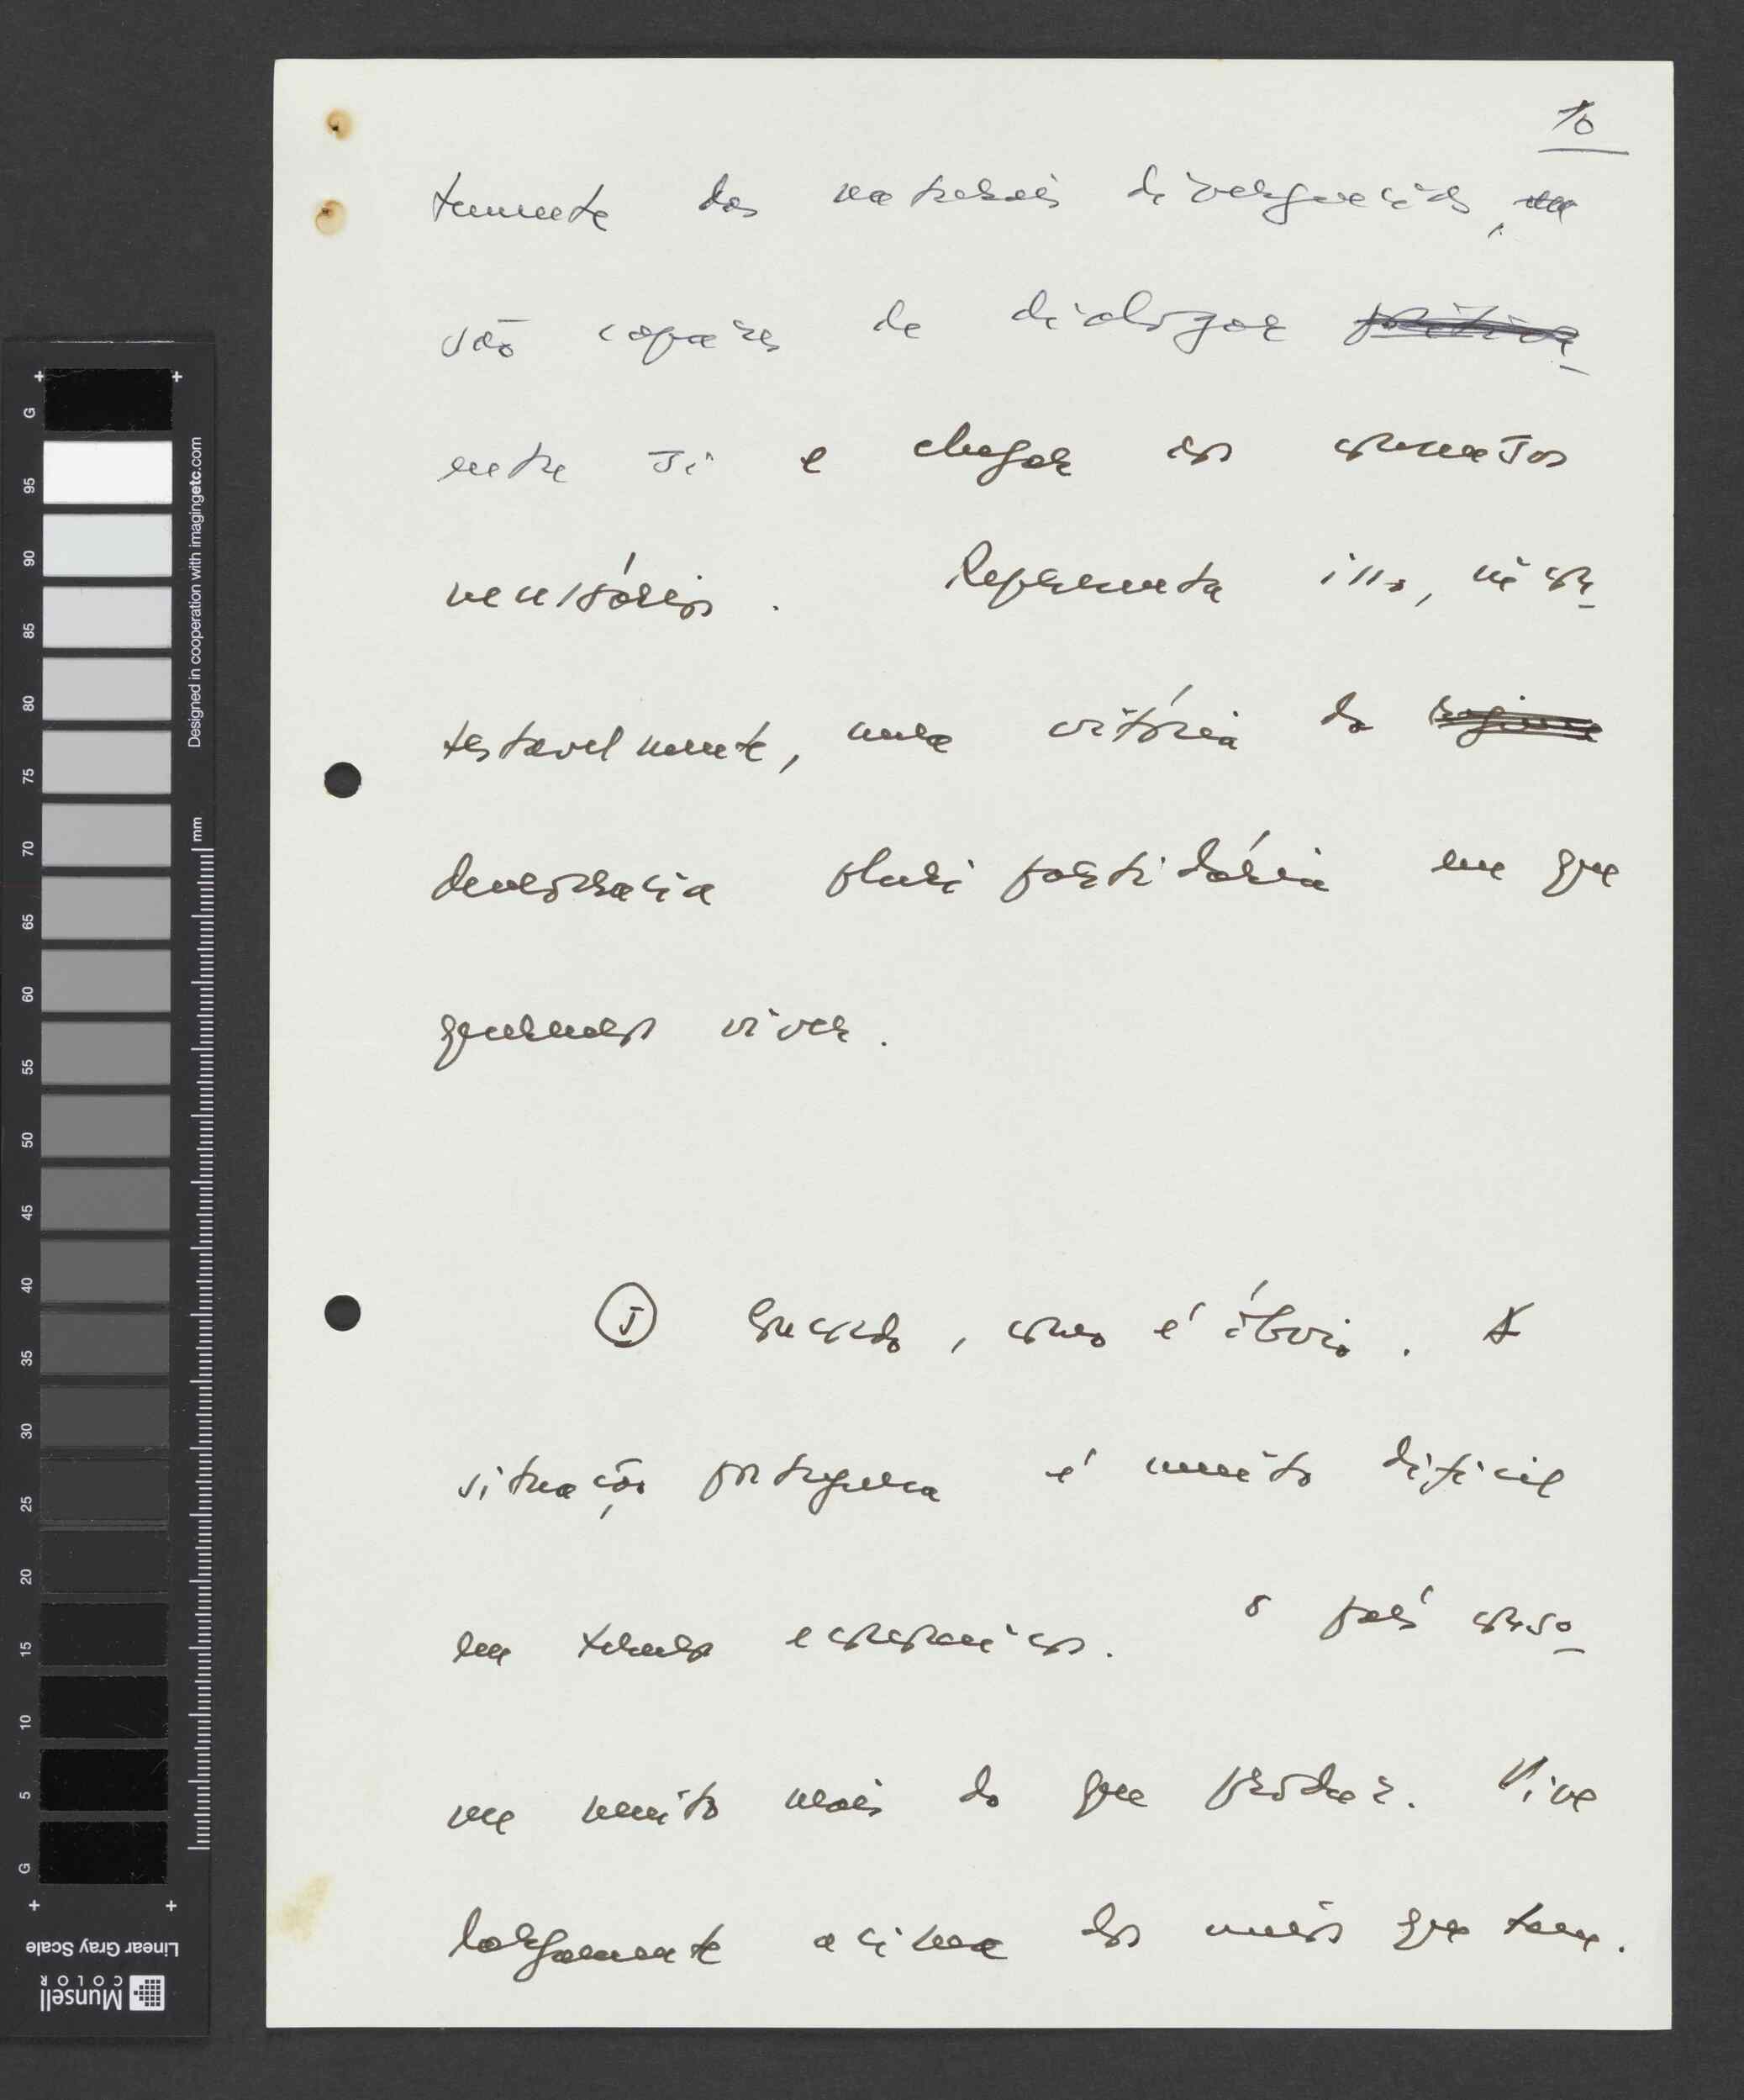 10
temente das naturais divergências,
são capazes de dialogar
entre si e chegar aos consensos
necessários. Representa isso, incon-
testavelmente, uma vitória da
democracia pluripartidária em que
queremos viver.
⑤ Concordo, como é óbvio. A
situação portuguesa é muito difícil
em termos económicos. O país conso-
me muito mais do que produz. Vive
largamente acima dos meios que tem.
Designed in cooperation with imagingetc.com
mm
G 95 90 85 80 75 70 65 60 55 50 45 40 35 30 25 20 15 10 5 G
Linear Gray Scale
Munsell
COLOR